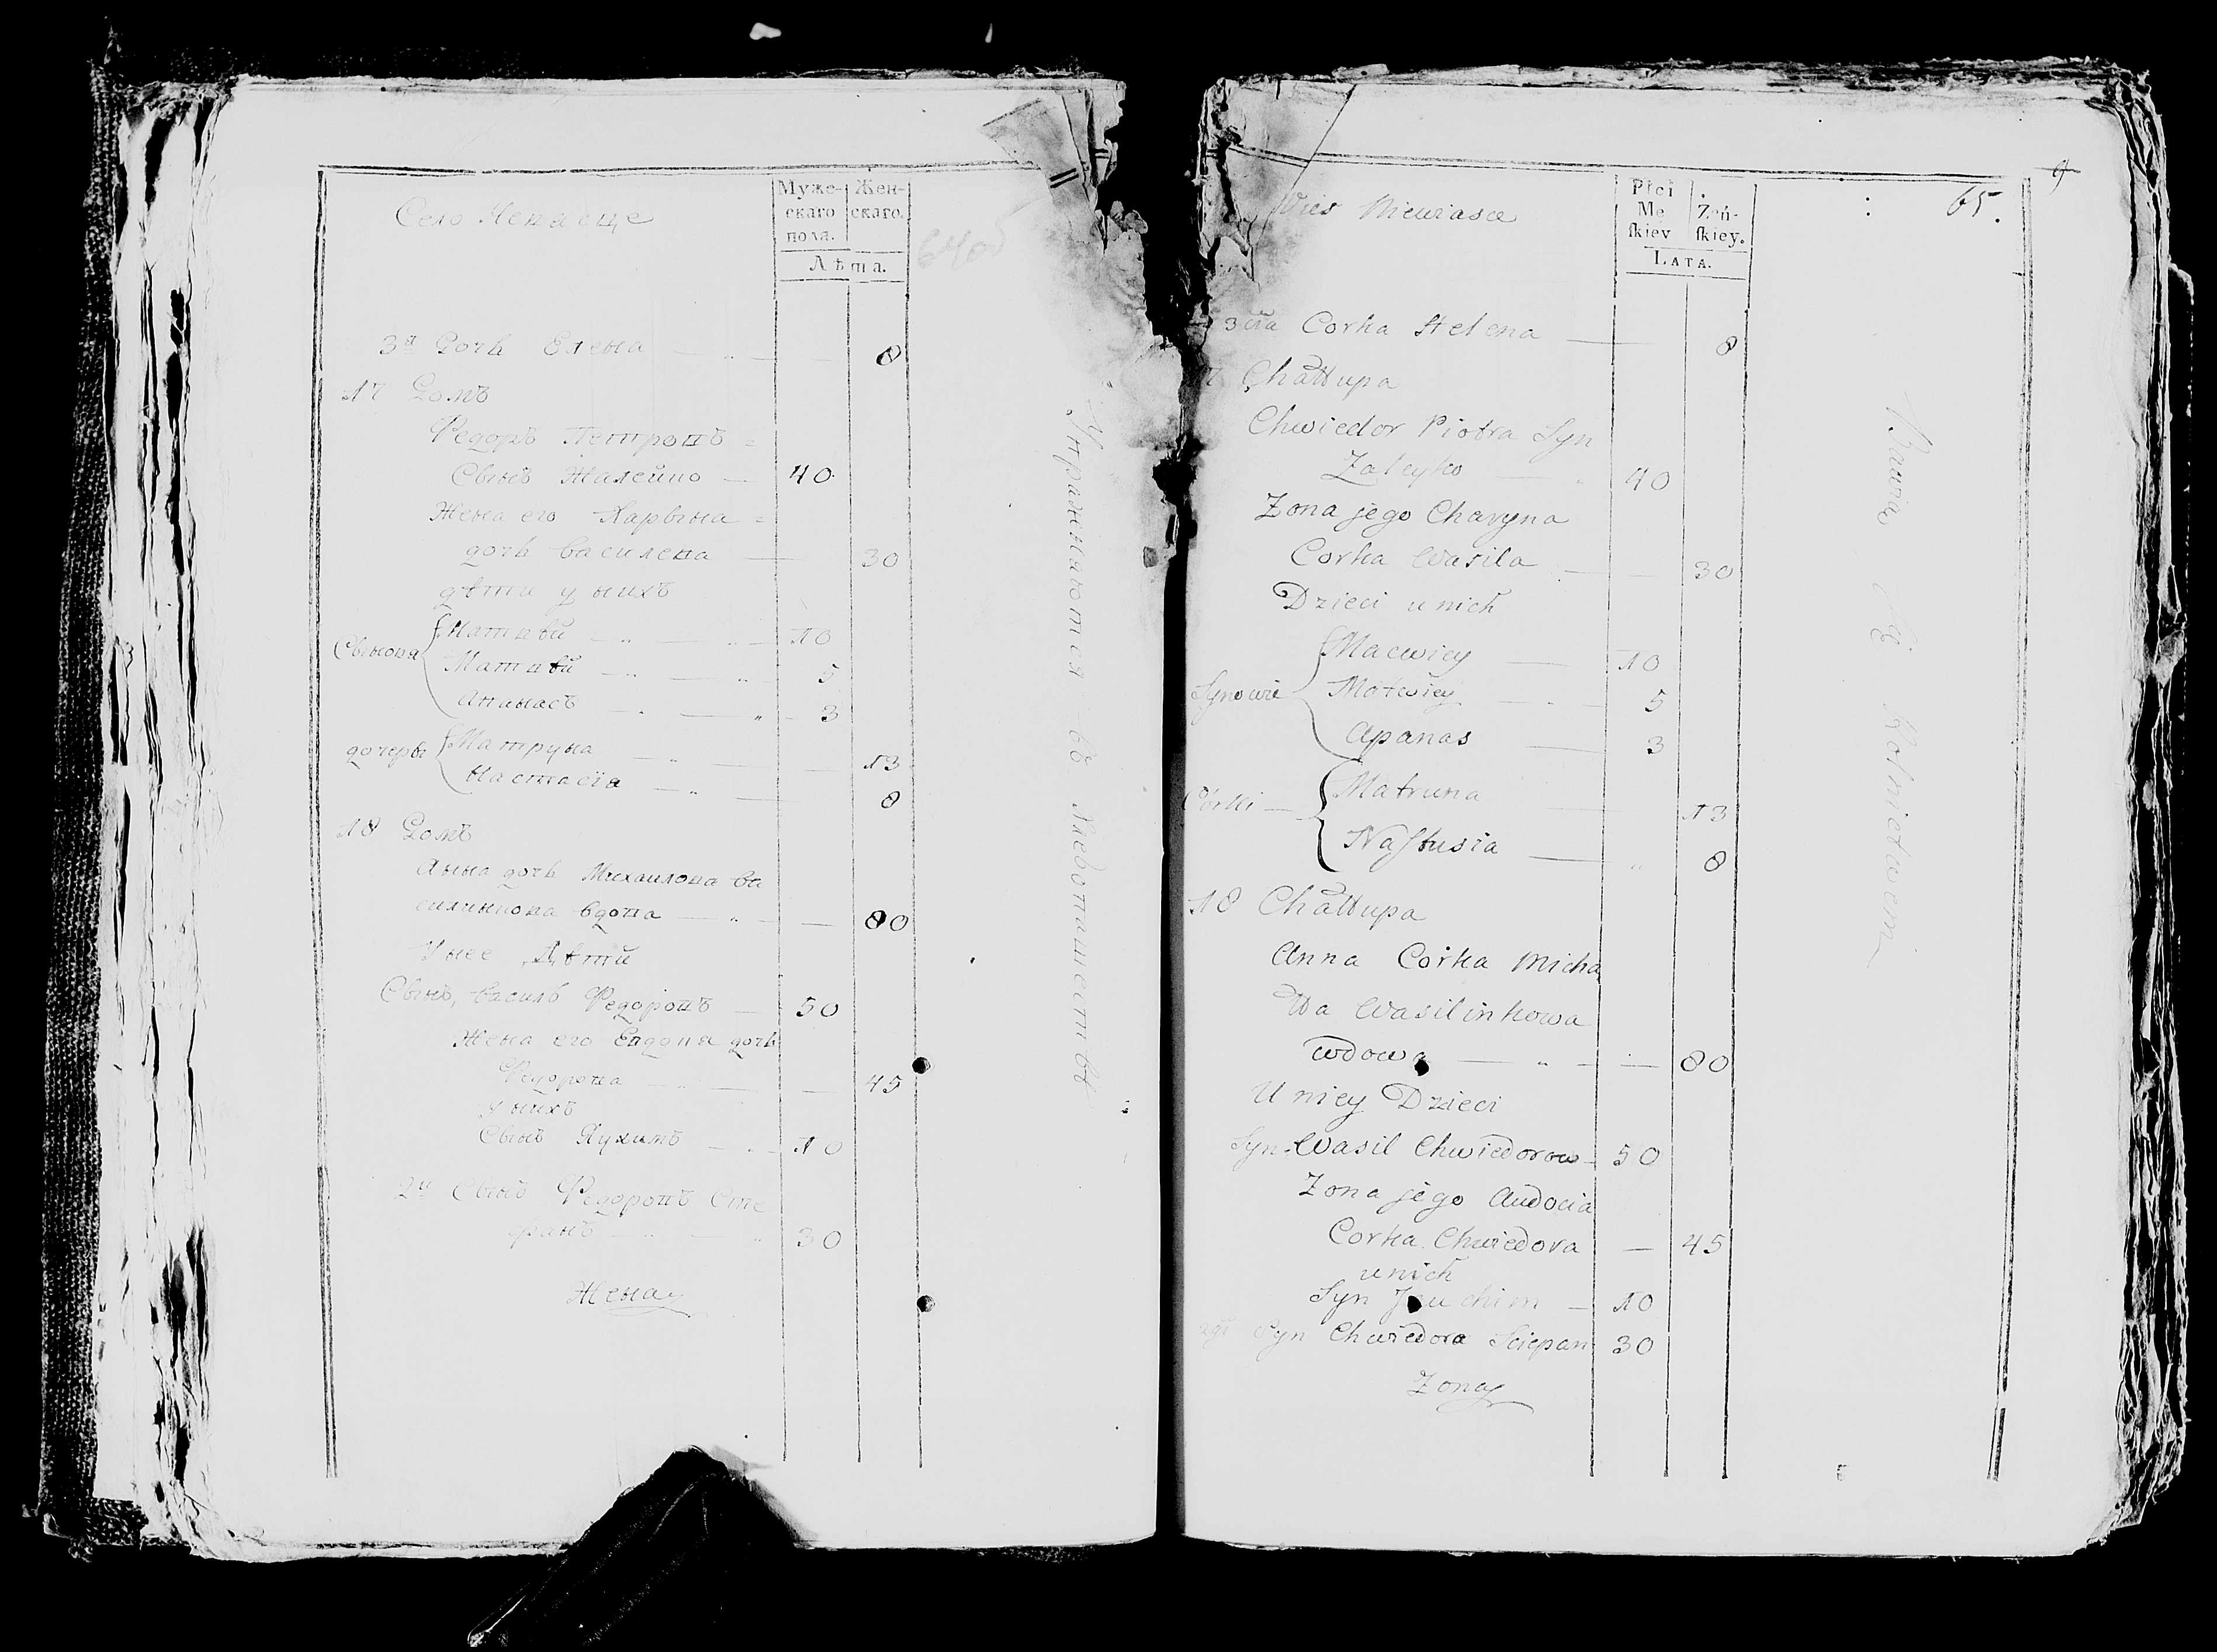 Село Невасце
Муже-
скаго
пола.
Жен-
скаго.
Лѣта.
64об
3я Дочь Елена 8
17 Домъ
Федоръ Петровъ
Сынъ Жилейко 40
Жена его Харвына
дочь василева 30
дѣти у нихъ
Сыновя
Матвѣй 10
Матвѣй 5
Апанасъ 3
дочеры
Матруна 13
Настасія 8
18 Домъ
Анна дочь Михаилова ва
силинкова вдова 80
У нее Дѣти
Сынъ, василь Федоровъ 50
Жена его Евдоня дочь
Федорова 45
у нихъ
Сынъ Яухимъ 10
2й Сынъ Федоровъ Сте
фанъ 30
Жена
Упражняются въ Хлебопашествѣ
Wies Niewiasce
Płci
Mę
skiey
Żeń-
skiey.
LATA.
65.
9
3cia Corka Helena 8
7 Chałłupa
Chwiedor Piotra Syn
Zaleyko 40
Zona jego Charyna
Corka Wasila 30
Dzieci u nich
Synowie
Macwiey 10
Motwiey 5
Apanas 3
Córki
Matruna 13
Nastusia 8
18 Chałłupa
Anna Corka Micha
łła Wasilinkowa
wdowa 80
U niey Dzieci
Syn Wasil Chwiedorow 50
Zona jego Audocia
Corka Chwiedora 45
u nich
Syn Jauchim 10
2gi Syn Chwiedora Sciepan 30
Zona
Bawią się Rolnictwem